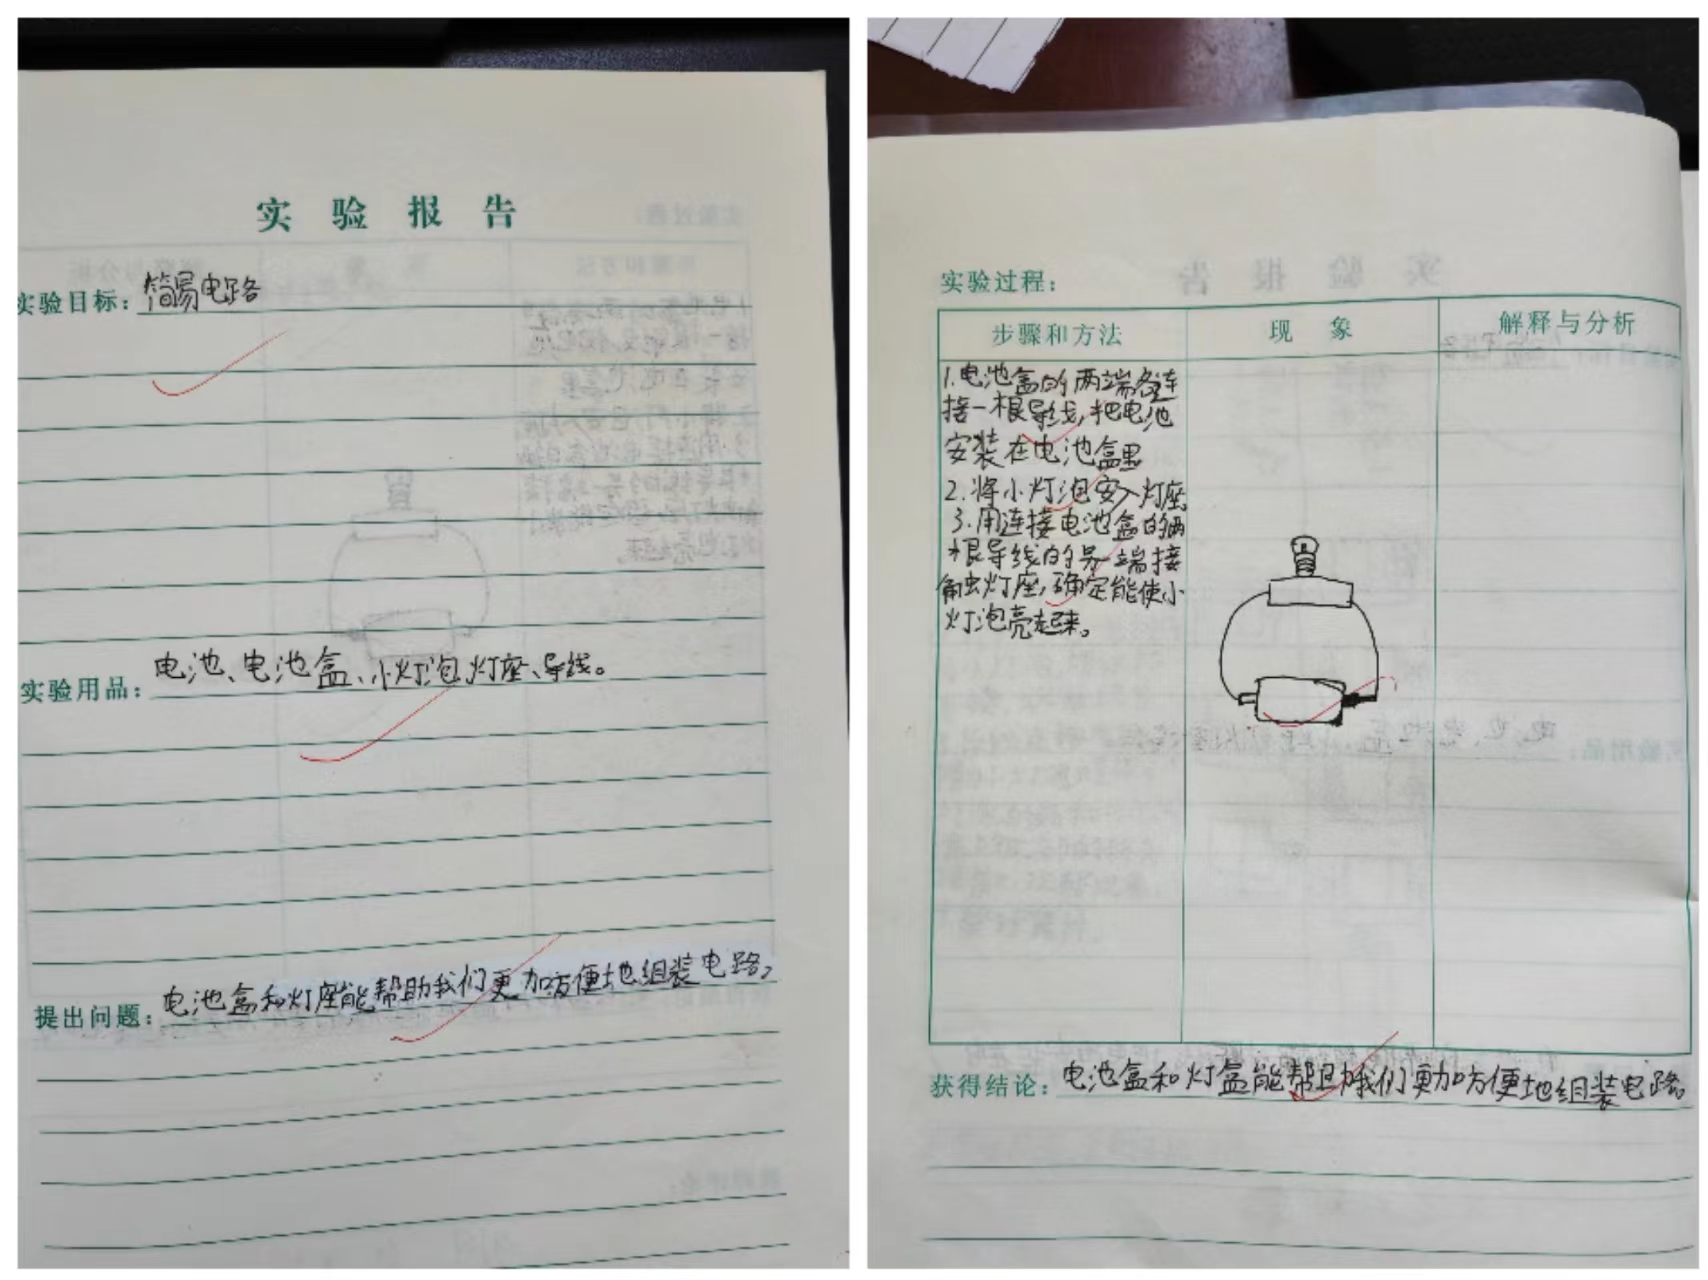 实验报告
实验目标：简易电路
实验用品：电池、电池盒、小灯泡、灯座、导线。
提出问题：电池盒和灯座能帮助我们更加方便地组装电路，
实验过程：
步骤和方法 现象 解释与分析
1.电池盒的两端各连
接一根导线，把电池
安装在电池盒里
2.将小灯泡安入灯座
3.用连接电池盒的两
根导线的另一端接
触灯座，确定能使小
灯泡亮起来。
获得结论：电池盒和灯盒能帮助我们更加方便地组装电路